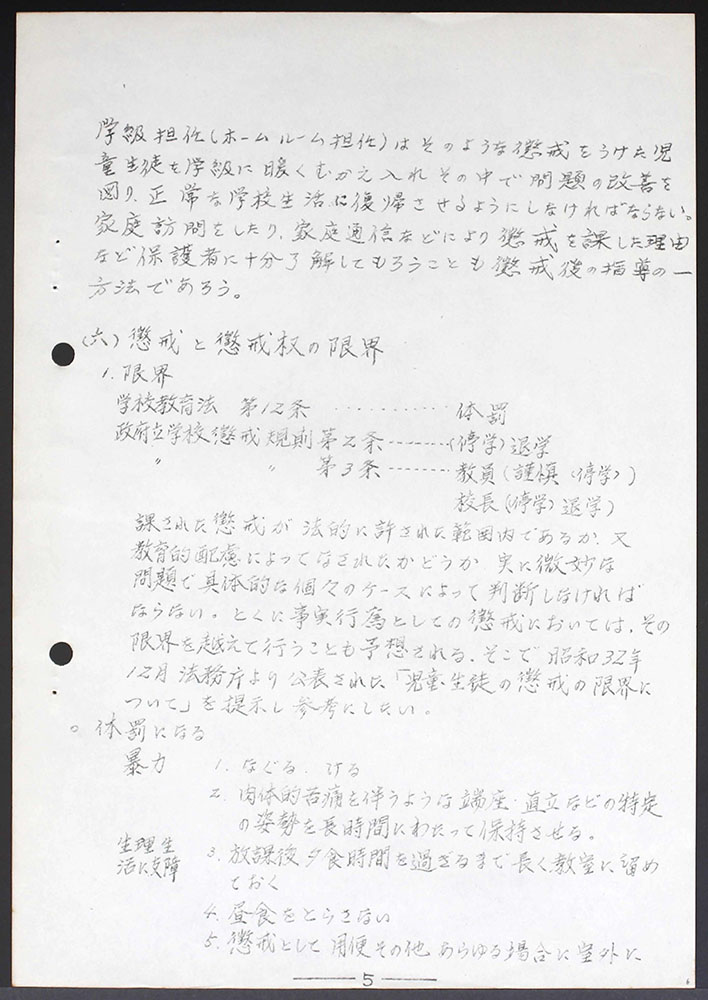 学級担任(ホームルーム担任)はそのような懲戒をうけた児
童生徒を学級に暖くむかえ入れその中で問題の改善を
図り、正常な学校生活に復帰させるようにしなければならない。
家庭訪問をしたり、家庭通信などにより懲戒を課した理由
など保護者に十分了解してもろうことも懲戒後の指導の一
方法であろう。
(六)懲戒と懲戒权の限界
1. 限界
学校教育法 第12条 ・・・・・・・・・・ 体罰
政府立学校懲戒規則第2条-------(停学)退学
〃 〃 第3条-------教員(謹慎(停学))
校長(停学)退学)
課された懲戒が法的に許された範囲内であるか、又
教育的配慮によってなされたかどうか 実に微妙な
問題で具体的な個々のケースによって判断しなければ
ならない。とくに事実行為としての懲戒においては、その
限界を越えて行うことも予想される、そこで昭和32年
12月法務庁より公表された「児童・生徒の懲戒の限界に
ついて」を提示し参考にしたい。
○ 体罰になる
暴力 1. なぐる、ける
2. 肉体的苦痛を伴うような端座・直立などの特定
の姿勢を長時間にわたって保持させる。
生理生
活に支障
3. 放課後夕食時間を過ぎるまで長く教室に留め
ておく
4. 昼食をとらさない
5. 懲戒として用便その他あらゆる場合に室外に
5